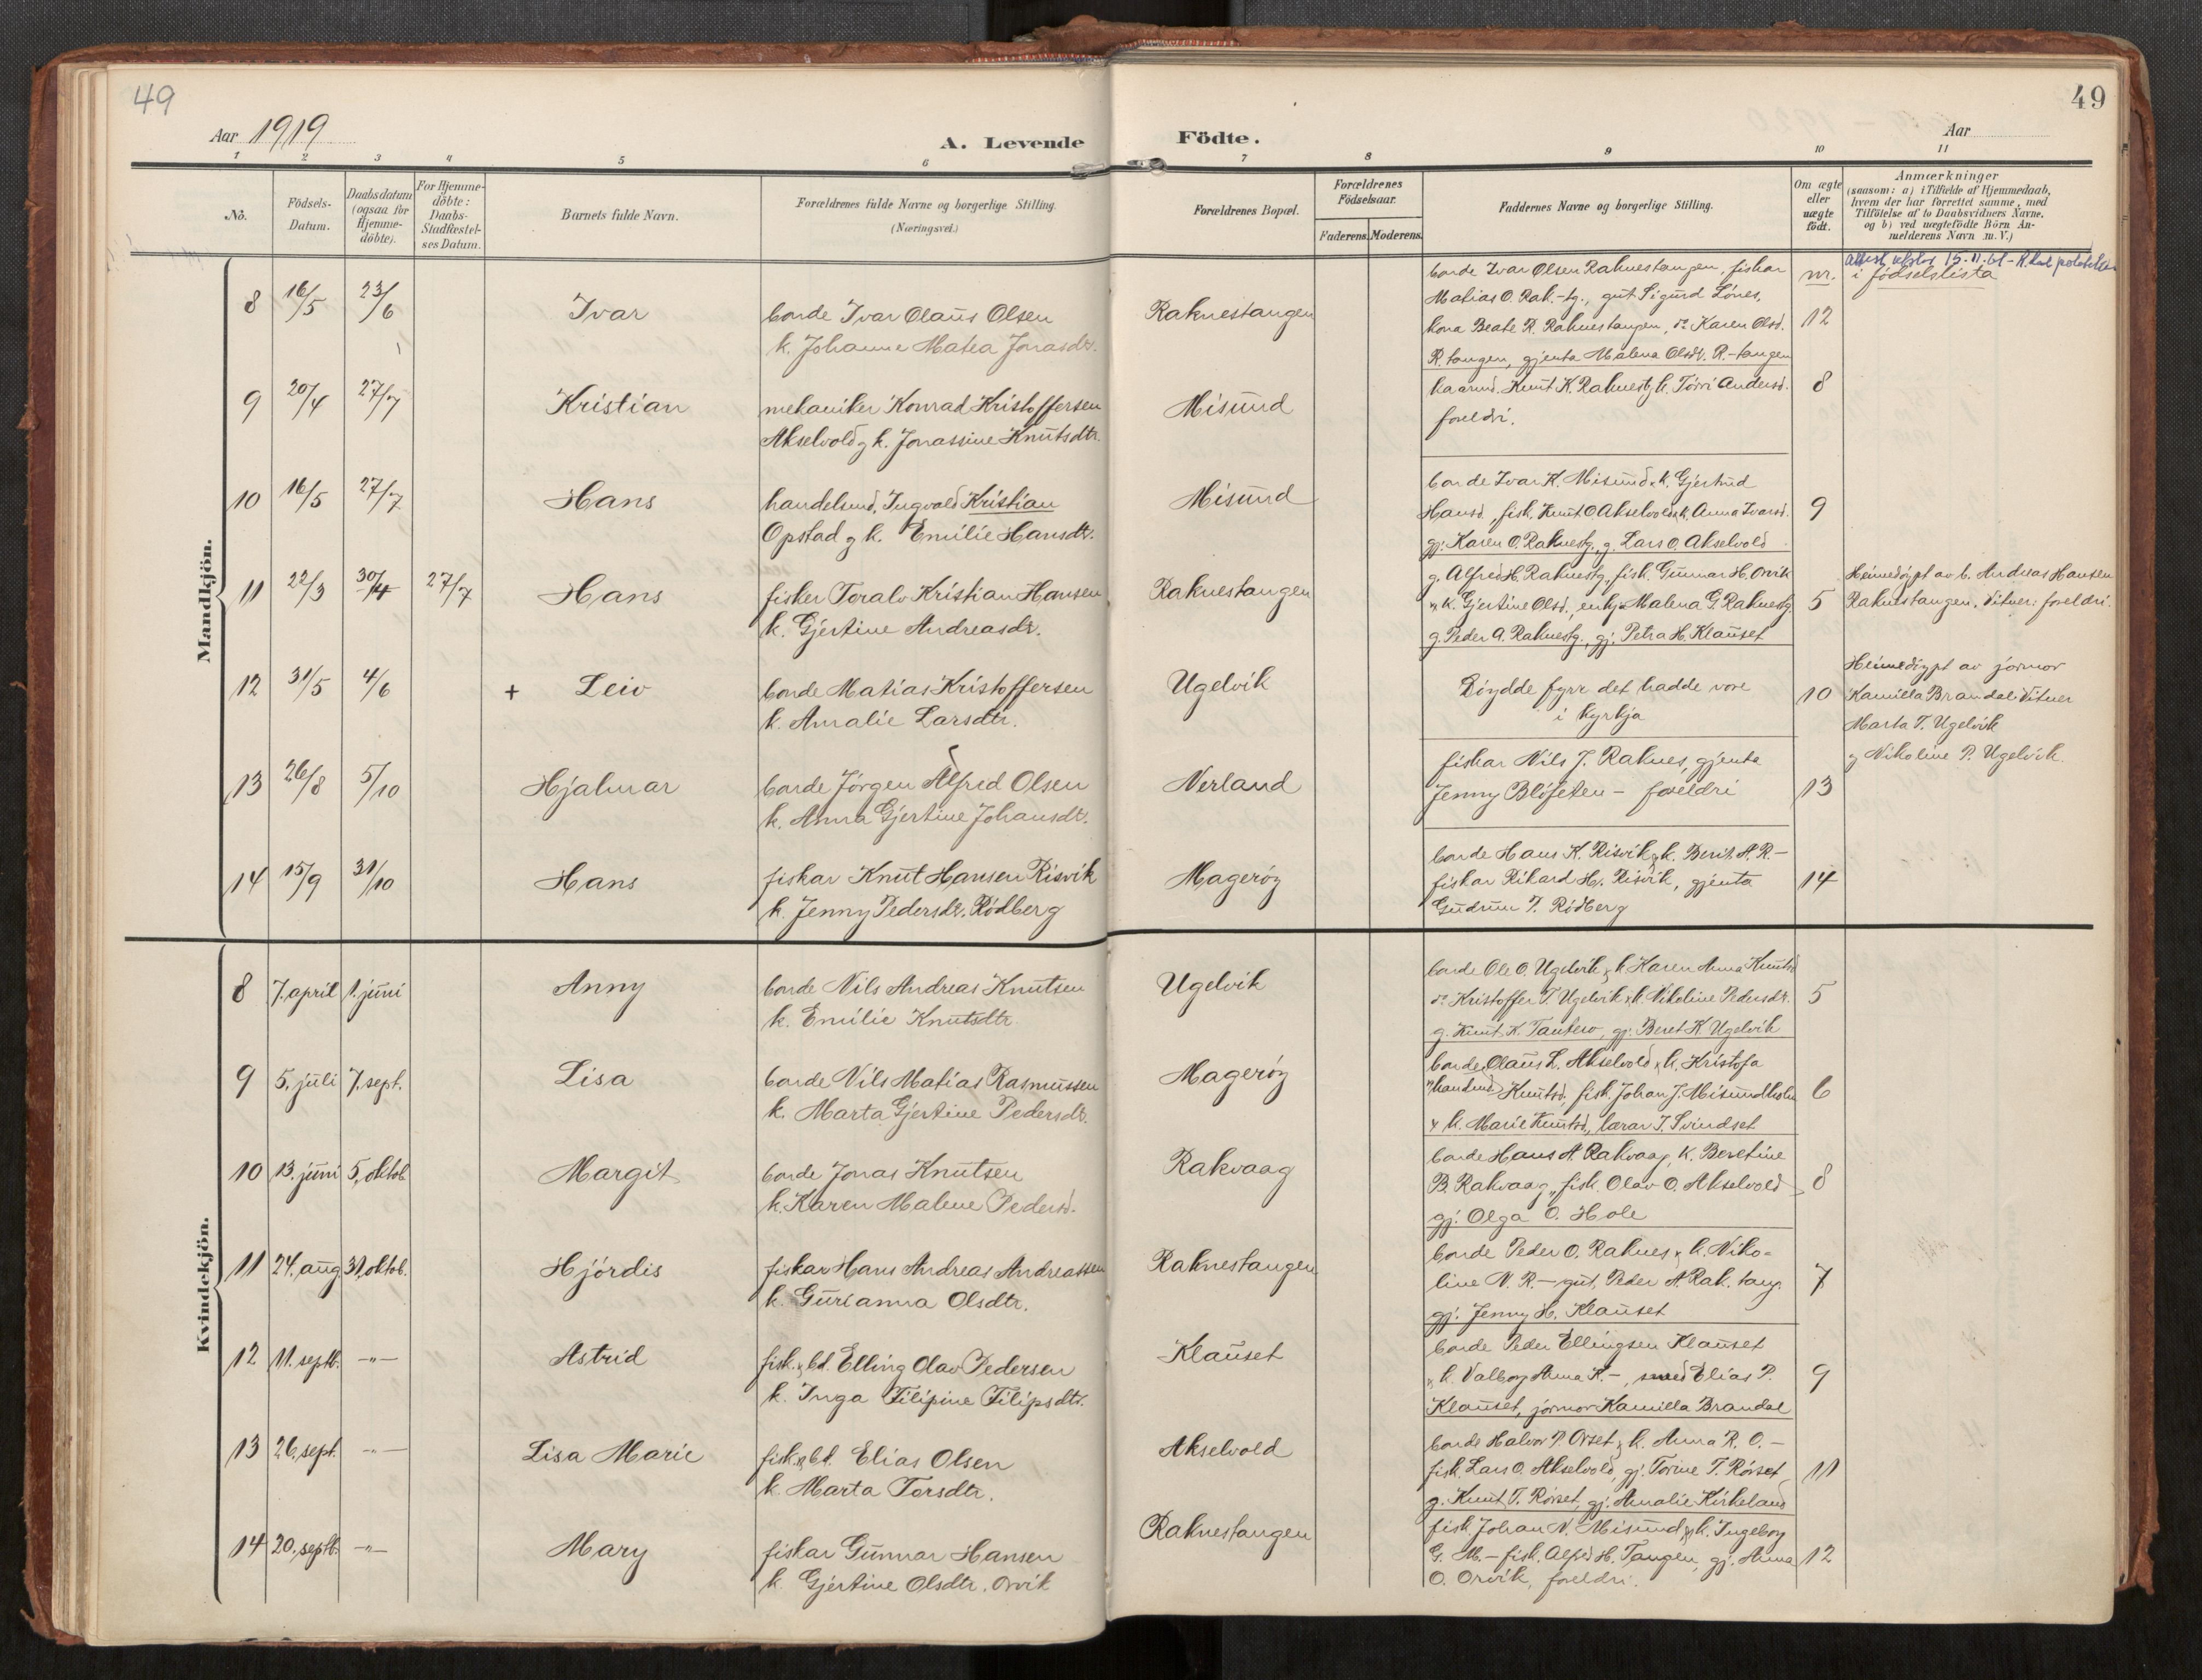 49
49
Aar 1919
A. Levende Födte.
Aar
1 2 3 4 5 6 7 8 9 10 11
No.
Födsels-Datum.
Daabsdatum (ogsaa for Hjemme-döbte).
For Hjemme-döbte: Daabs-Stadfæstel-ses Datum.
Barnets fulde Navn.
Forældrenes fulde Navne og borgerlige Stilling.
(Næringsvei.)
Forældrenes Bopæl.
Forældrenes Födselsaar.
Faderens. Moderens.
Faddernes Navne og borgerlige Stilling.
Om ægte eller uægte födt.
Anmærkninger
(saasom: a) i Tilfælde af Hjemmedaab,
hvem der har forrettet samme, med
Tilföielse af to Daabsvidners Navne.
og b) ved uægtefödte Börn An-
melderens Navn m. V.)
nr. i födselslista
Mandkjön.
8 16/5 23/6 Ivar
bonde Ivar Olaus Olsen
k. Johanne Matea Jonasdtr.
Raknestangen
bonde Ivar Olsen Raknestangen, fiskar
Matias O. Rak.-tg., gut Sigurd Lönes,
kona Beate R. Raknestangen, do Karen Olsd.
R.tangen, gjenta Malena Olsdt. R.-tangen
12
9 20/4 27/7 Kristian
mekaniker Konrad Kristoffersen
Akselvold og k. Jonassine Knutsdtr.
Misund
kaarmd. Knut K. Raknestg, k. Andersd.
foreldri.
8
10 16/5 27/7 Hans
handelsmd. Ingvald Kristian
Opstad og k. Emilie Hansdtr.
Misund
bonde Ivar K. Misund & k. Gjertrud
Hansd., fisk. Knut O. Akselvold & k. Anna Ivarsd.
gj. Karen O. Raknestg., g. Lars O. Akselvold
9
11 22/3 30/4 27/7 Hans
fisker Toralv Kristian Hansen
k. Gjertine Andreasdr.
Raknestangen
g. Alfred H. Raknestg, fisk. Gunnar H. Orvik
& k. Gjertine Olsd., enkja Malena G. Raknestg
g. Peder A. Raknestg., gj. Petra H. Klauset
5
Heimedöypt av b. Andreas Hansen
Raknestangen. Vitner: foreldri.
12 31/5 4/6 + Leiv
bonde Matias Kristoffersen
k. Amalie Larsdtr.
Ugelvik
Döydde fyrr det hadde vore
i kyrkja
10
Heimedöypt av jormor
Kamilla Brandal. Vitner
Marta T. Ugelvik
og Nikoline P. Ugelvik.
13 26/8 5/10 Hjalmar
bonde Jörgen Alfred Olsen
k. Anna Gjertine Johansdt.
Nerland
fiskar Nils J. Raknes, gjenta
Jenny Blöseten – foreldri
13
14 15/9 31/10 Hans
fiskar Knut Hansen Risvik
k. Jenny Pedersdt. Rödberg
Mageröy
bonde Hans K. Risvik, & k. Berit A. R.–
fiskar Rikard H. Risvik, gjenta
Gudrun P. Rödberg
14
Kvindekjön.
8 7. april 1. juni Anny
bonde Nils Andreas Knutsen
k. Emilie Knutsdtr
Ugelvik
bonde Ole O. Ugelvik & k. Karen Anna Knutsd
do Kristoffer T. Ugelvik & k. Nikoline Pedersdt.
g. Knut K. Tautero, gj. Beret K. Ugelvik
5
9 5. juli 7. sept. Lisa
bonde Nils Matias Rasmussen
k. Marta Gjertine Pedersdt.
Mageröy
bonde Olaus L. Akselvold & k. Kristofa
Knutsd., fisk. Johan J. Misundholm
& k. Marie Knutsd., lærar J. Svindset
6
10 13. juni 5. oktob. Margit
bonde Jonas Knutsen
k. Karen Malene Pedersd.
Rakvaag
bonde Hans A. Rakvaag, k. Beretine
B. Rakvaag, fisk. Olav O. Akselvold
gj. Olga O. Hole
8
11 24. aug. 31. oktob. Hjördis
fiskar Hans Andreas Andreassen
k. Gurianna Olsdtr.
Raknestangen
bonde Peder O. Raknes & k. Niko-
line N. R.– gut, Peder A Rak. tang.
gj. Jenny H. Klauset
7
12 11. septb. –"– Astrid
fisk. & bd. Elling Olav Pedersen
k. Inga Filipine Filipsdtr.
Klauset
bonde Peder Ellingsen Klauset
& k. Valborg Anna K.–, smed Elias P.
Klauset, jormor Kamilla Brandal
9
13 26. sept. –"– Lisa Marie
fisk. & bd. Elias Olsen
k. Marta Torsdtr.
Akselvold
bonde Halvor P. Orset & k. Anna R. O.–
fisk. Lars O. Akselvold, gj. Torine T. Rörset
g. Knut T. Rörset, gj. Amalie Kirkeland
11
14 20. septb. –"– Mary
fiskar Gunnar Hansen
k. Gjertine Olsdtr. Orvik
Raknestangen
fisk. Johan N. Misund, & k. Ingeborg
G. M.– fisk. Alfred H. Tangen, gj. Anna
O. Orvik, foreldri.
12